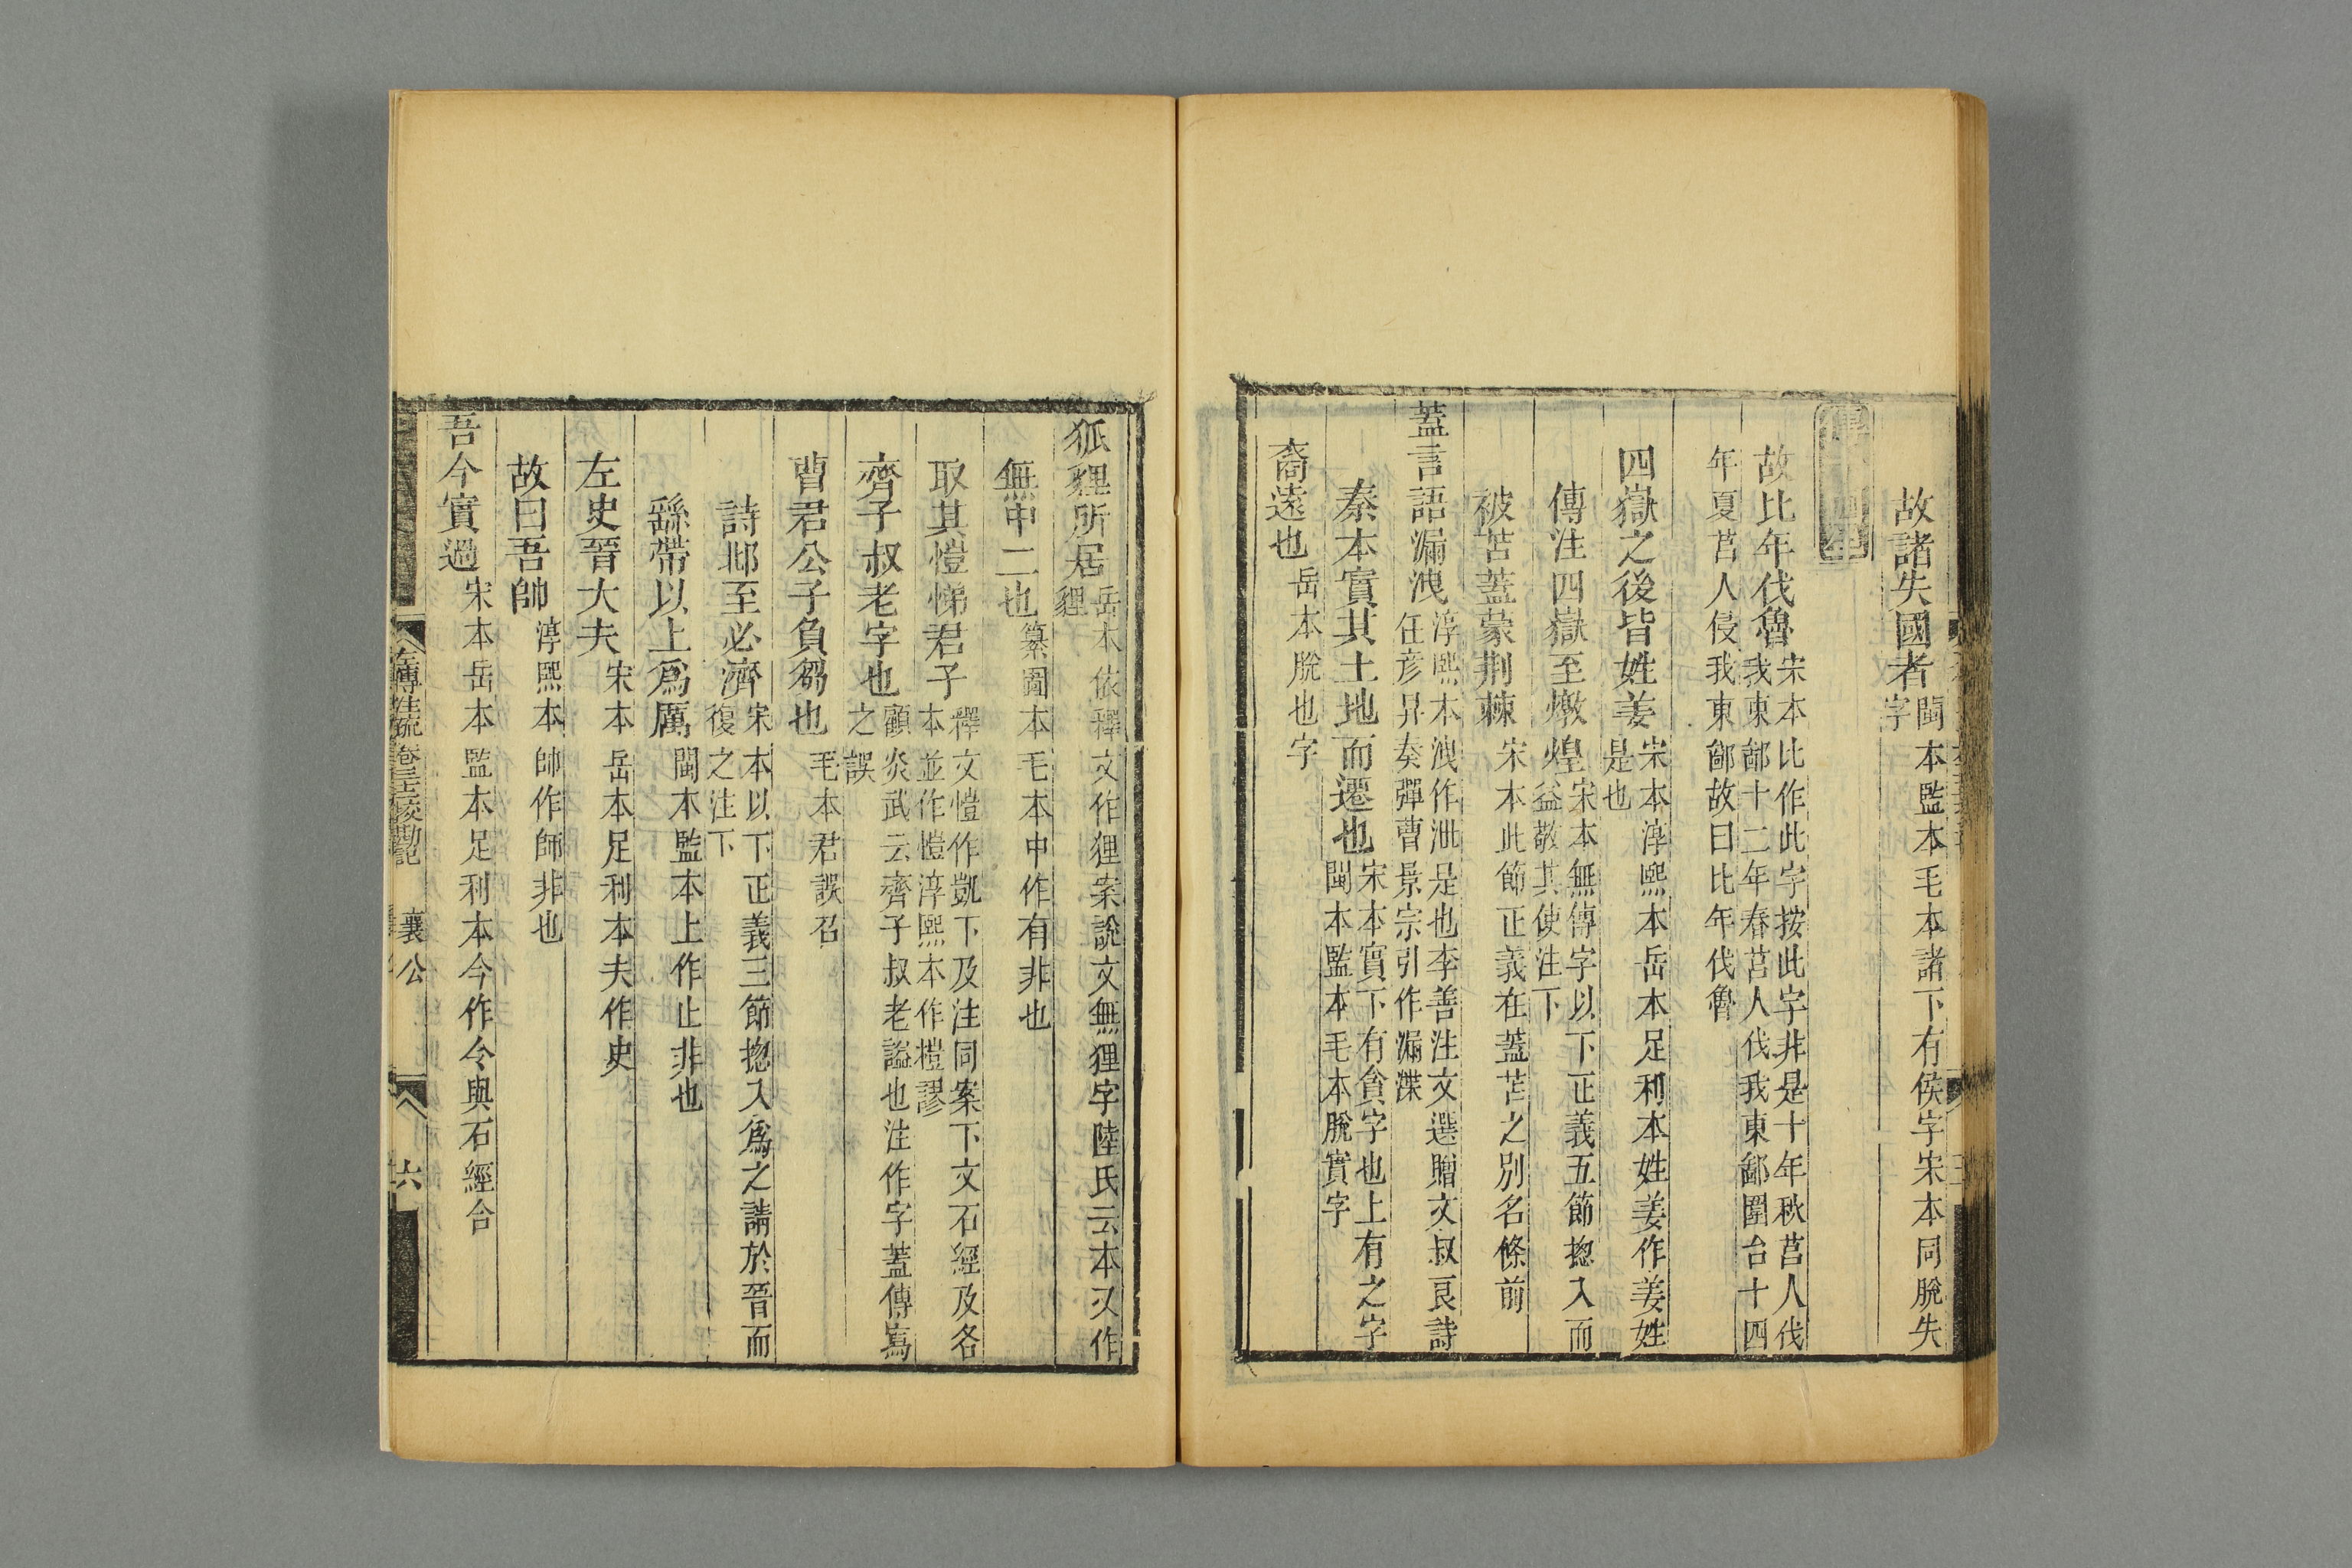 故諸失國者閩本監本毛本諸下有侯字宋本同脫失字
傳十四年
故比年伐魯宋本比作此字按此字非是十年秋莒人伐我東鄙十二年春莒人伐我東鄙圍台十四
年夏莒人侵我東鄙故曰比年伐魯
四嶽之後皆姓姜宋本淳熙本岳本足利本姓姜作姜姓是也
傳注四嶽至燉煌宋本無傳字以下正義五節揔入而益敬其使注下
被苫蓋蒙荆棘宋本此節正義在蓋苫之別名條前
蓋言語漏洩淳熙本洩作泄是也李善注文選贈文叔良詩任彦昇奏彈曹景宗引作漏渫
秦本實其土地而遷也宋本實下有貪字也上有之字閩本監本毛本脫實字
裔遠也岳本脫也字
狐貍所居岳本依釋文作狸案說文無狸字陸氏云本又作貍
無中二也纂圖本毛本中作有非也
取其愷悌君子釋文愷作凱下及注同案下文石經及各本並作愷淳熙本作榿謬
齊子叔老字也顧炎武云齊子叔老謚也注作字蓋傳寫之誤
曹君公子負芻也毛本君誤召
詩邶至必濟宋本以下正義三節揔入爲之請於晉而復之注下
繇帶以上爲厲閩本監本上作止非也
左史晉大夫宋本岳本足利本夫作史
故曰吾帥淳熙本帥作師非也
吾今實過宋本岳本監本足利本今作令與石經合
左傳注疏卷三十二挍勘記 襄公 六